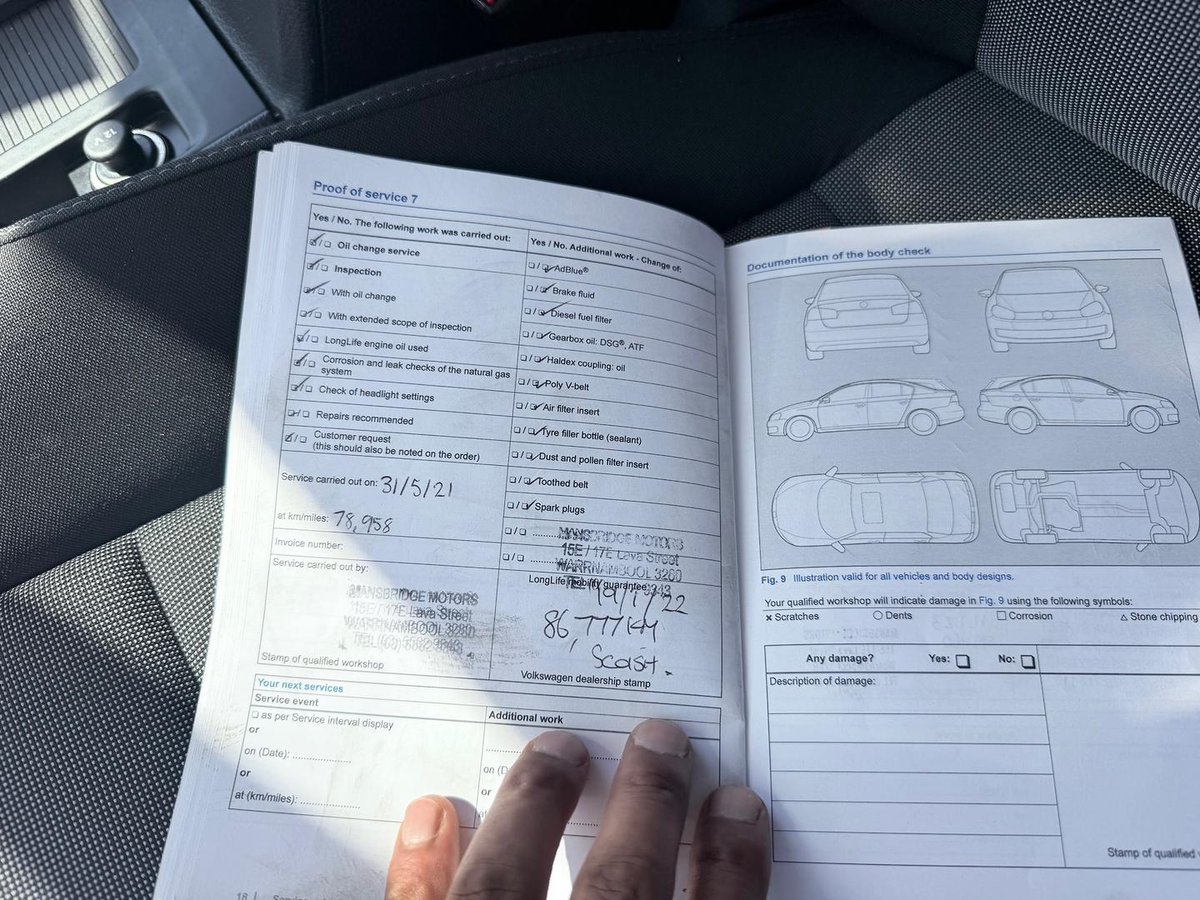 12 V
Proof of service 7
Yes / No. The following work was carried out:
Oil change service
Inspection
With oil change
With extended scope of inspection
LongLife engine oil used
Corrosion and leak checks of the natural gas
system
Check of headlight settings
Repairs recommended
Customer request
(this should also be noted on the order)
Service carried out on: 31/5/21
at km/miles: 78,958
Invoice number:
Service carried out by:
MANSBRIDGE MOTORS
15E / 17E Lava Street
WARRNAMBOOL 3280
Stamp of qualified workshop
Yes / No. Additional work - Change of:
AdBlue®
Brake fluid
Diesel fuel filter
Gearbox oil: DSG®, ATF
Haldex coupling: oil
Poly V-belt
Air filter insert
Tyre filler bottle (sealant)
Dust and pollen filter insert
Toothed belt
Spark plugs
MANSBRIDGE MOTORS
15E / 17E Lava Street
WARRNAMBOOL 3280
LongLife mobility guarantee
86,777 KM
Volkswagen dealership stamp
Your next services
Service event
as per Service interval display
or
on (Date):
or
at (km/miles):
Additional work
or
18
Documentation of the body check
Fig. 9 Illustration valid for all vehicles and body designs.
Your qualified workshop will indicate damage in Fig. 9 using the following symbols:
x Scratches ○ Dents □ Corrosion △ Stone chipping
Any damage? Yes: No:
Description of damage:
Stamp of qualified